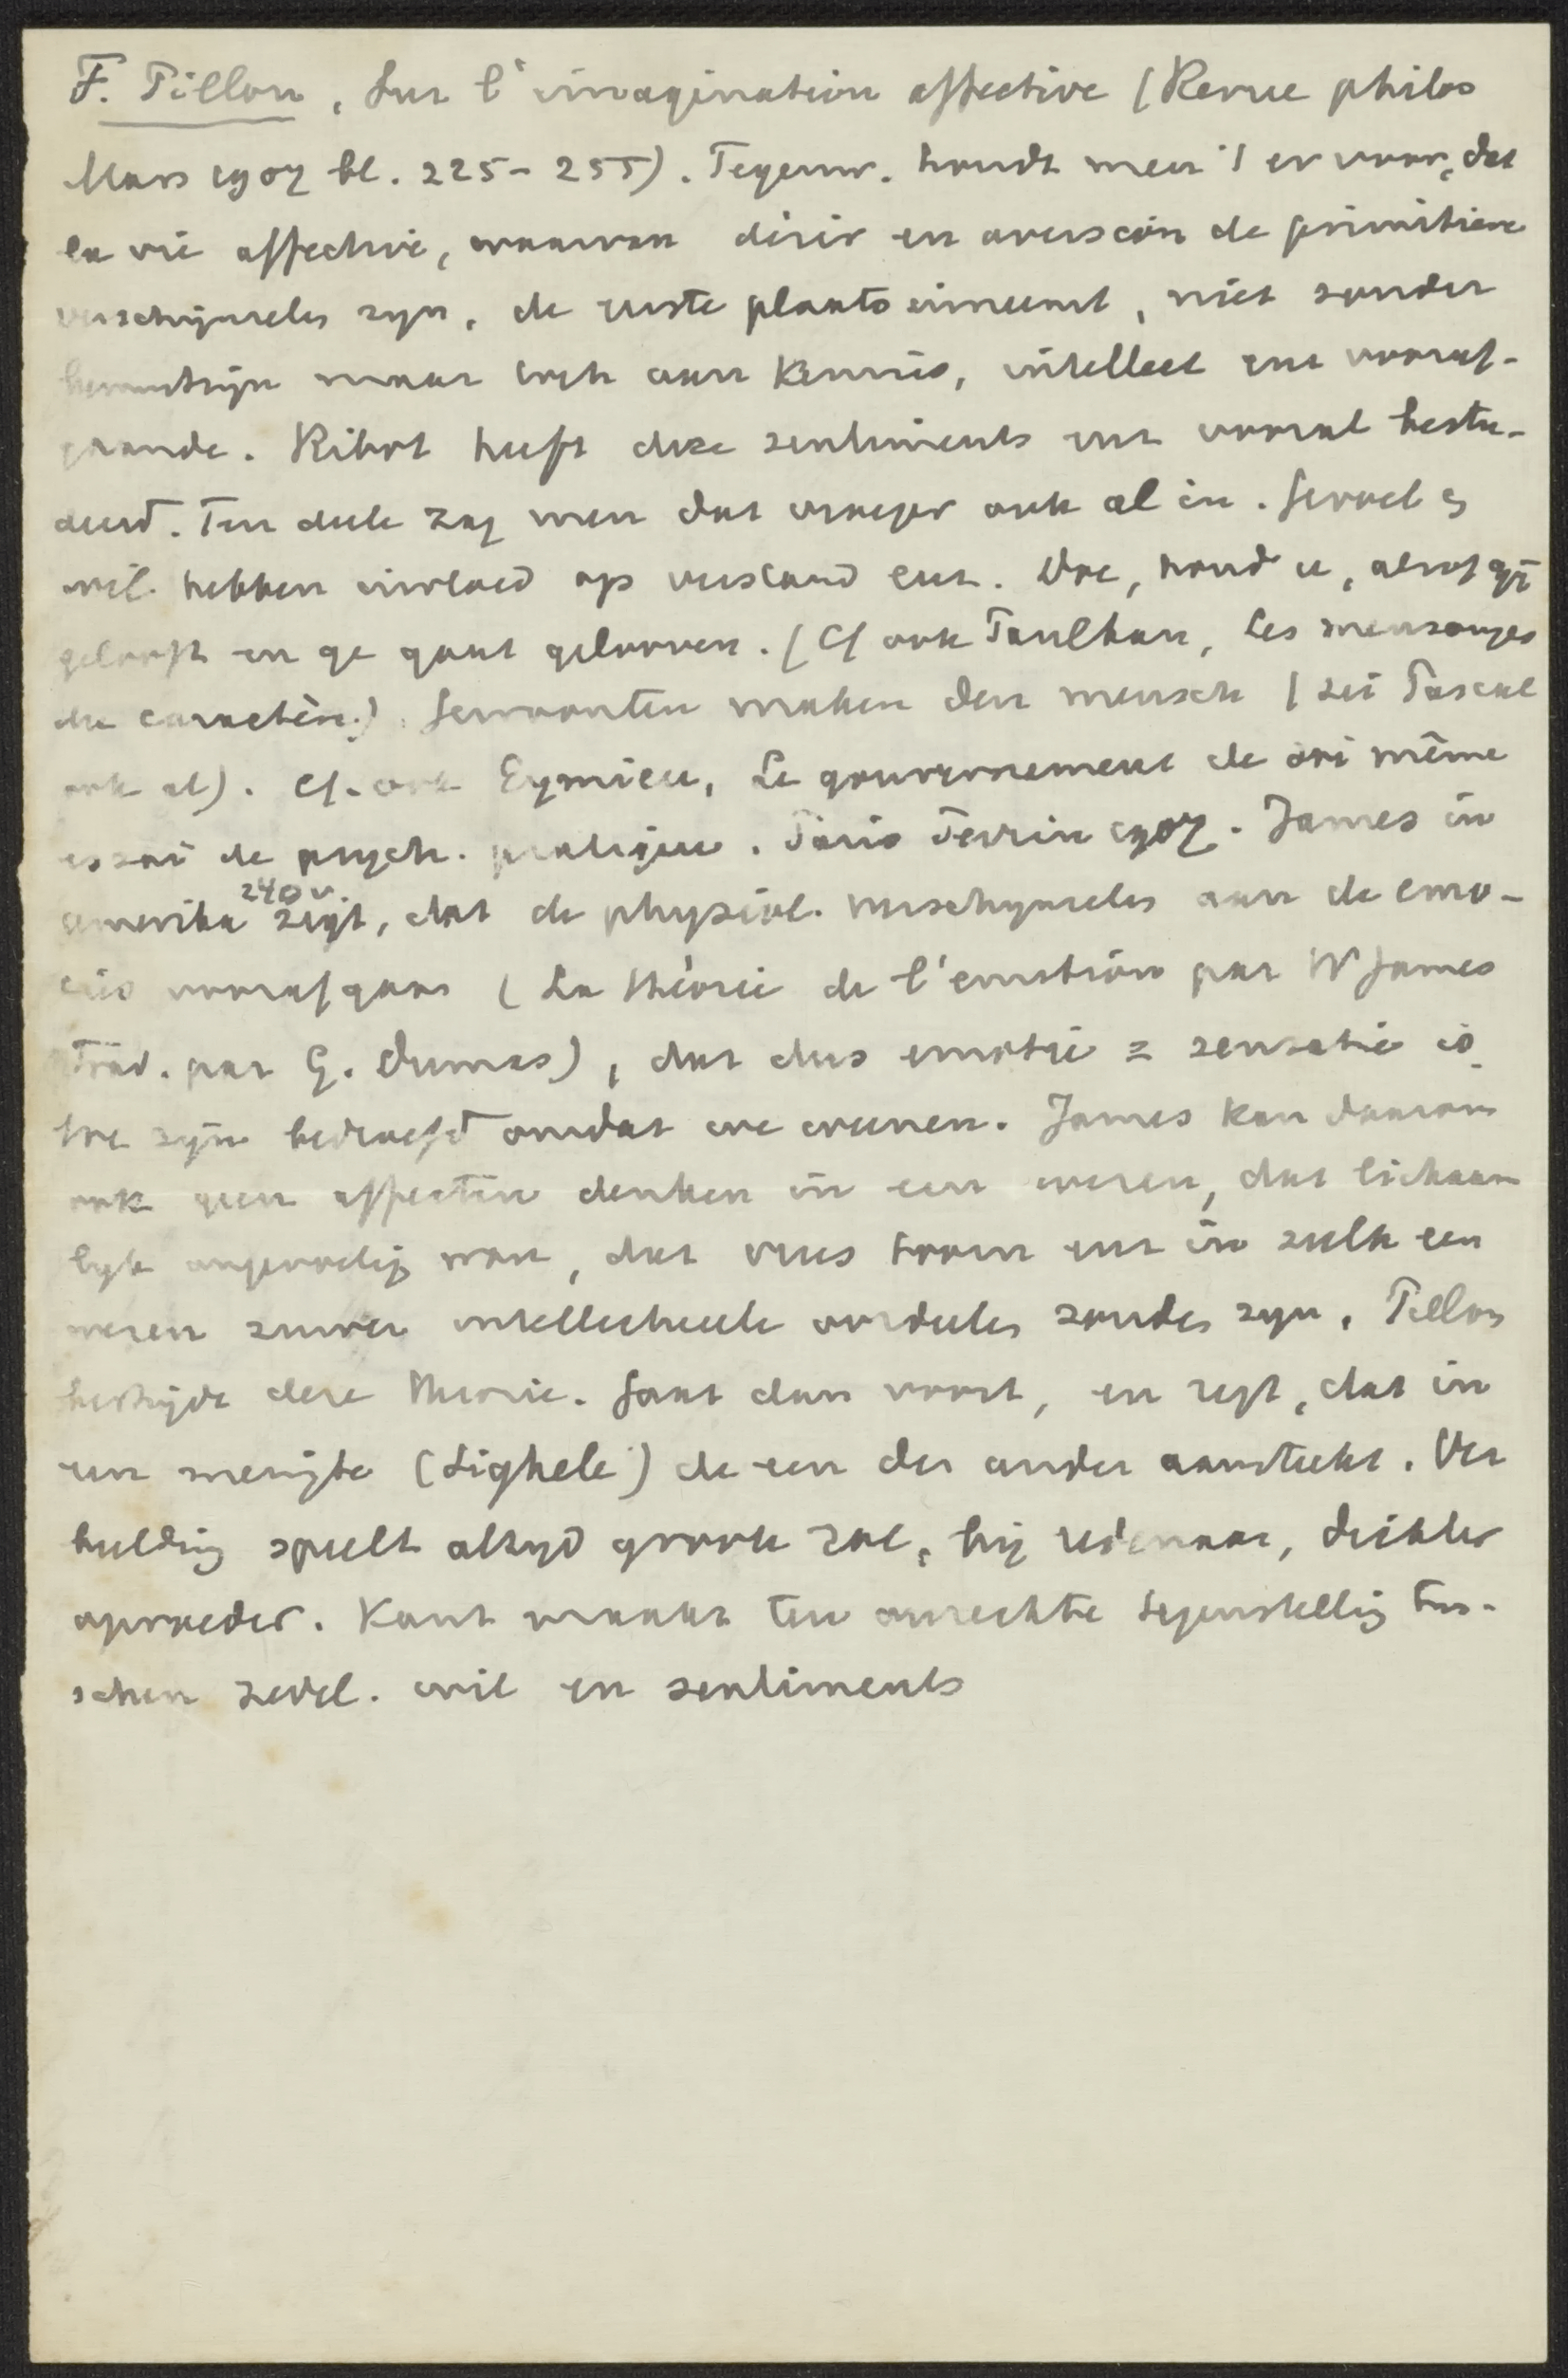 F. Pillon, Sur l'imagination affective (Revue philos
Mars 1907 bl. 225-255). Tegenw. houdt men 't er voor, dat
la vie affective, waarvan désir en aversion de primitieve
verschijnselen zyn, de eerste plaats inneemt, niet zonder
bewustzijn maar toch aan kennis, intellect enz vooraf-
gaande. Ribot heeft deze sentiments enz vooral bestu-
deerd. Ten deele zag men dat vroeger ook al in. Gevoel en
wil hebben invloed op verstand enz. Doe, houd u, alsof gij
gelooft en ge gaat gelooven. (Cf ook Paulhan, Les mensonges
du caractère.) Gewoonten maken den mensch (zei Pascal
ook al). Cf. ook Eymieu, Le gouvernement de soi même
essai de psych. pratique. Paris Perrin 1907. James in
240 v.
Amerika zegt, dat de physiol. verschynselen aan de emo-
ties voorafgaan (La théorie de l'emotion par W James
Trad. par G. Dumas), dat dus emotie = sensatie is.
We zyn bedroefd omdat we weenen. James kan daarom
ook geen affecten denken in een wezen, dat lichaam
lyk ongevoelig was, dat vrees toorn enz in zulk een
wezen zuiver intellectueele oordeelen zouden zyn. Pillon
bestrijdt deze theorie. Gaat dan voort, en zegt, dat in
een menigte (Sighele) de een den ander aansteekt. Ver
beelding speelt altyd groote rol, bij redenaar, dichter
opvoeder. Kant maakt ten onrechte tegenstelling tus-
schen zedel. wil en sentiments